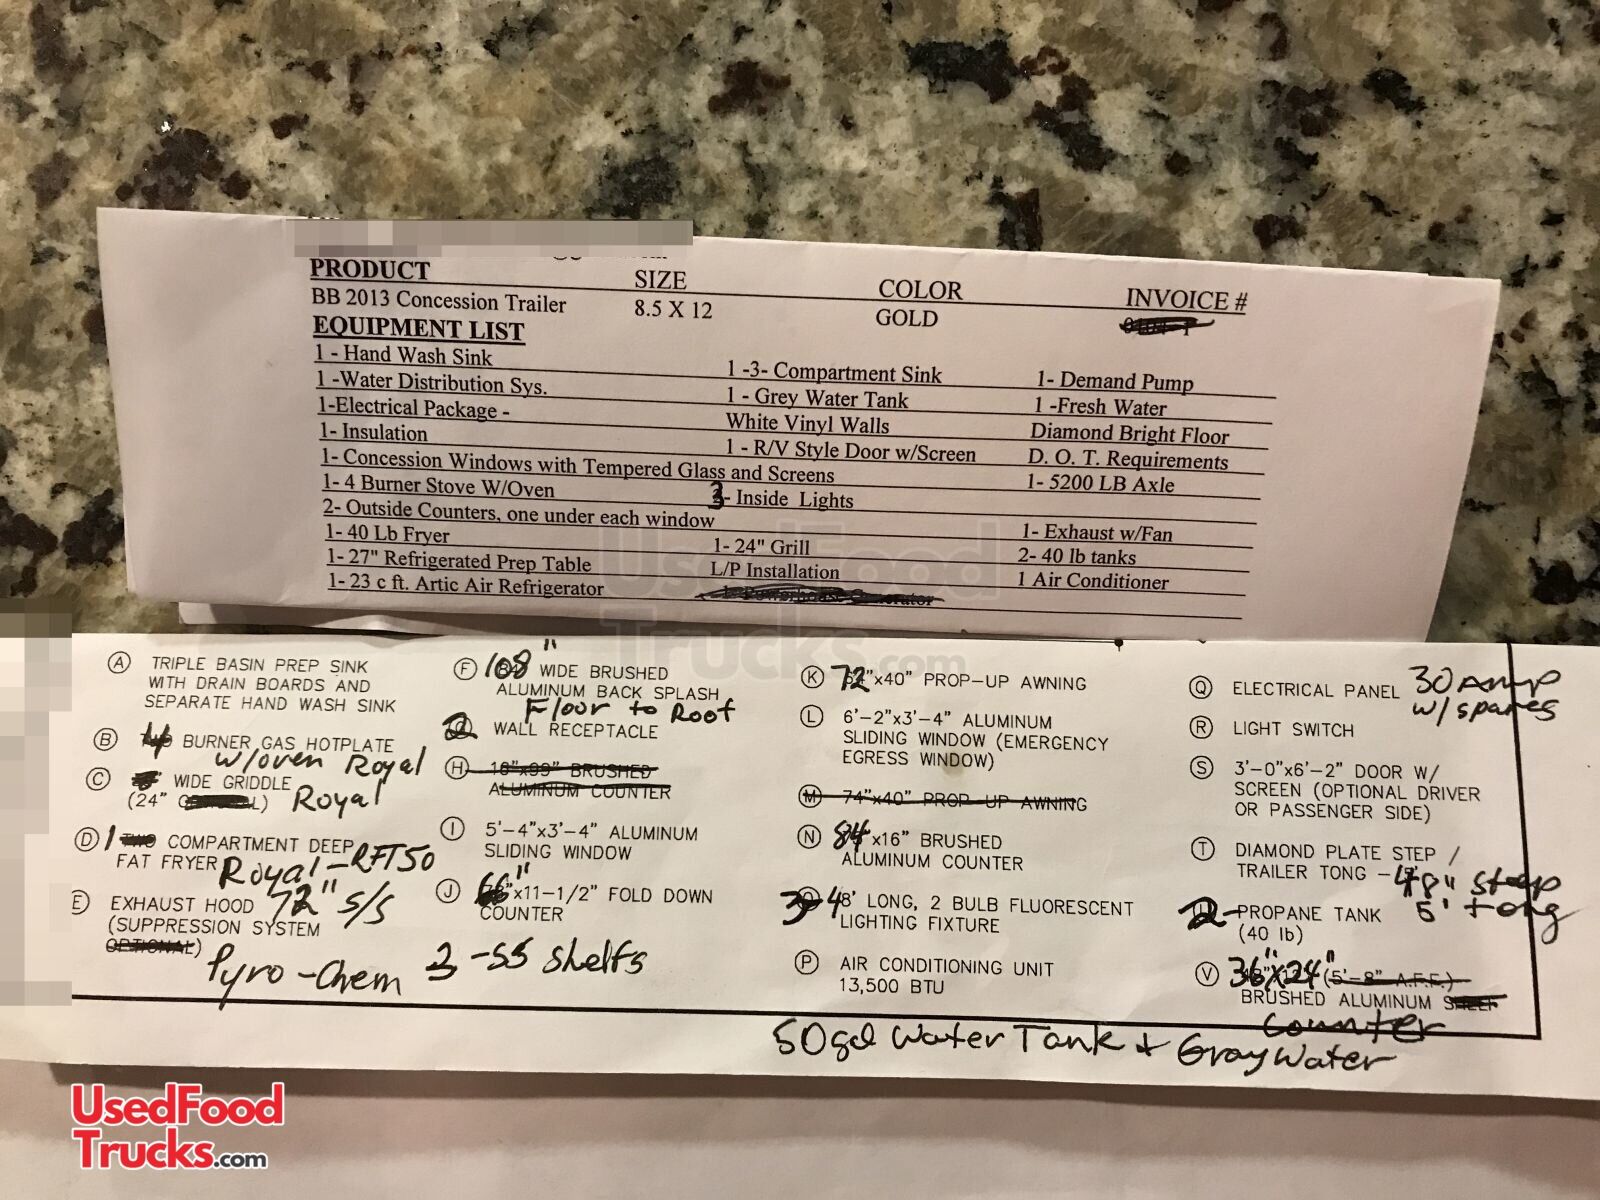 PRODUCT SIZE COLOR INVOICE #
BB 2013 Concession Trailer 8.5 X 12 GOLD
EQUIPMENT LIST
1 - Hand Wash Sink 1 -3- Compartment Sink 1- Demand Pump
1 -Water Distribution Sys. 1 - Grey Water Tank 1 -Fresh Water
1-Electrical Package - White Vinyl Walls Diamond Bright Floor
1- Insulation 1 - R/V Style Door w/Screen D. O. T. Requirements
1- Concession Windows with Tempered Glass and Screens 1- 5200 LB Axle
1- 4 Burner Stove W/Oven 3- Inside Lights
2- Outside Counters, one under each window 1- Exhaust w/Fan
1- 40 Lb Fryer 1- 24" Grill 2- 40 lb tanks
1- 27" Refrigerated Prep Table L/P Installation 1 Air Conditioner
1- 23 c ft. Artic Air Refrigerator 1- Powerhouse Generator
A TRIPLE BASIN PREP SINK
WITH DRAIN BOARDS AND
SEPARATE HAND WASH SINK
B 4 BURNER GAS HOTPLATE
w/oven Royal
C WIDE GRIDDLE
(24" L) Royal
D 1 TWO COMPARTMENT DEEP
FAT FRYER Royal-RFT50
E EXHAUST HOOD 72" S/S
(SUPPRESSION SYSTEM
OPTIONAL) Pyro-Chem
F 108" WIDE BRUSHED
ALUMINUM BACK SPLASH
Floor to Roof
2 WALL RECEPTACLE
H 18"x99" BRUSHED
ALUMINUM COUNTER
I 5'-4"x3'-4" ALUMINUM
SLIDING WINDOW
J 66"x11-1/2" FOLD DOWN
COUNTER
3 -SS Shelfs
K 72"x40" PROP-UP AWNING
L 6'-2"x3'-4" ALUMINUM
SLIDING WINDOW (EMERGENCY
EGRESS WINDOW)
M 74"x40" PROP-UP AWNING
N 84x16" BRUSHED
ALUMINUM COUNTER
3-48' LONG, 2 BULB FLUORESCENT
LIGHTING FIXTURE
P AIR CONDITIONING UNIT
13,500 BTU
Q ELECTRICAL PANEL 30 Amp
w/spares
R LIGHT SWITCH
S 3'-0"x6'-2" DOOR W/
SCREEN (OPTIONAL DRIVER
OR PASSENGER SIDE)
T DIAMOND PLATE STEP /
TRAILER TONG - 48" Step
5' tong
2- PROPANE TANK
(40 lb)
V 36"x24" (5'-8" A.F.F.)
BRUSHED ALUMINUM SHELF
Counter
50gal Water Tank + Gray Water
UsedFood
Trucks.com
UsedFood
Trucks.com